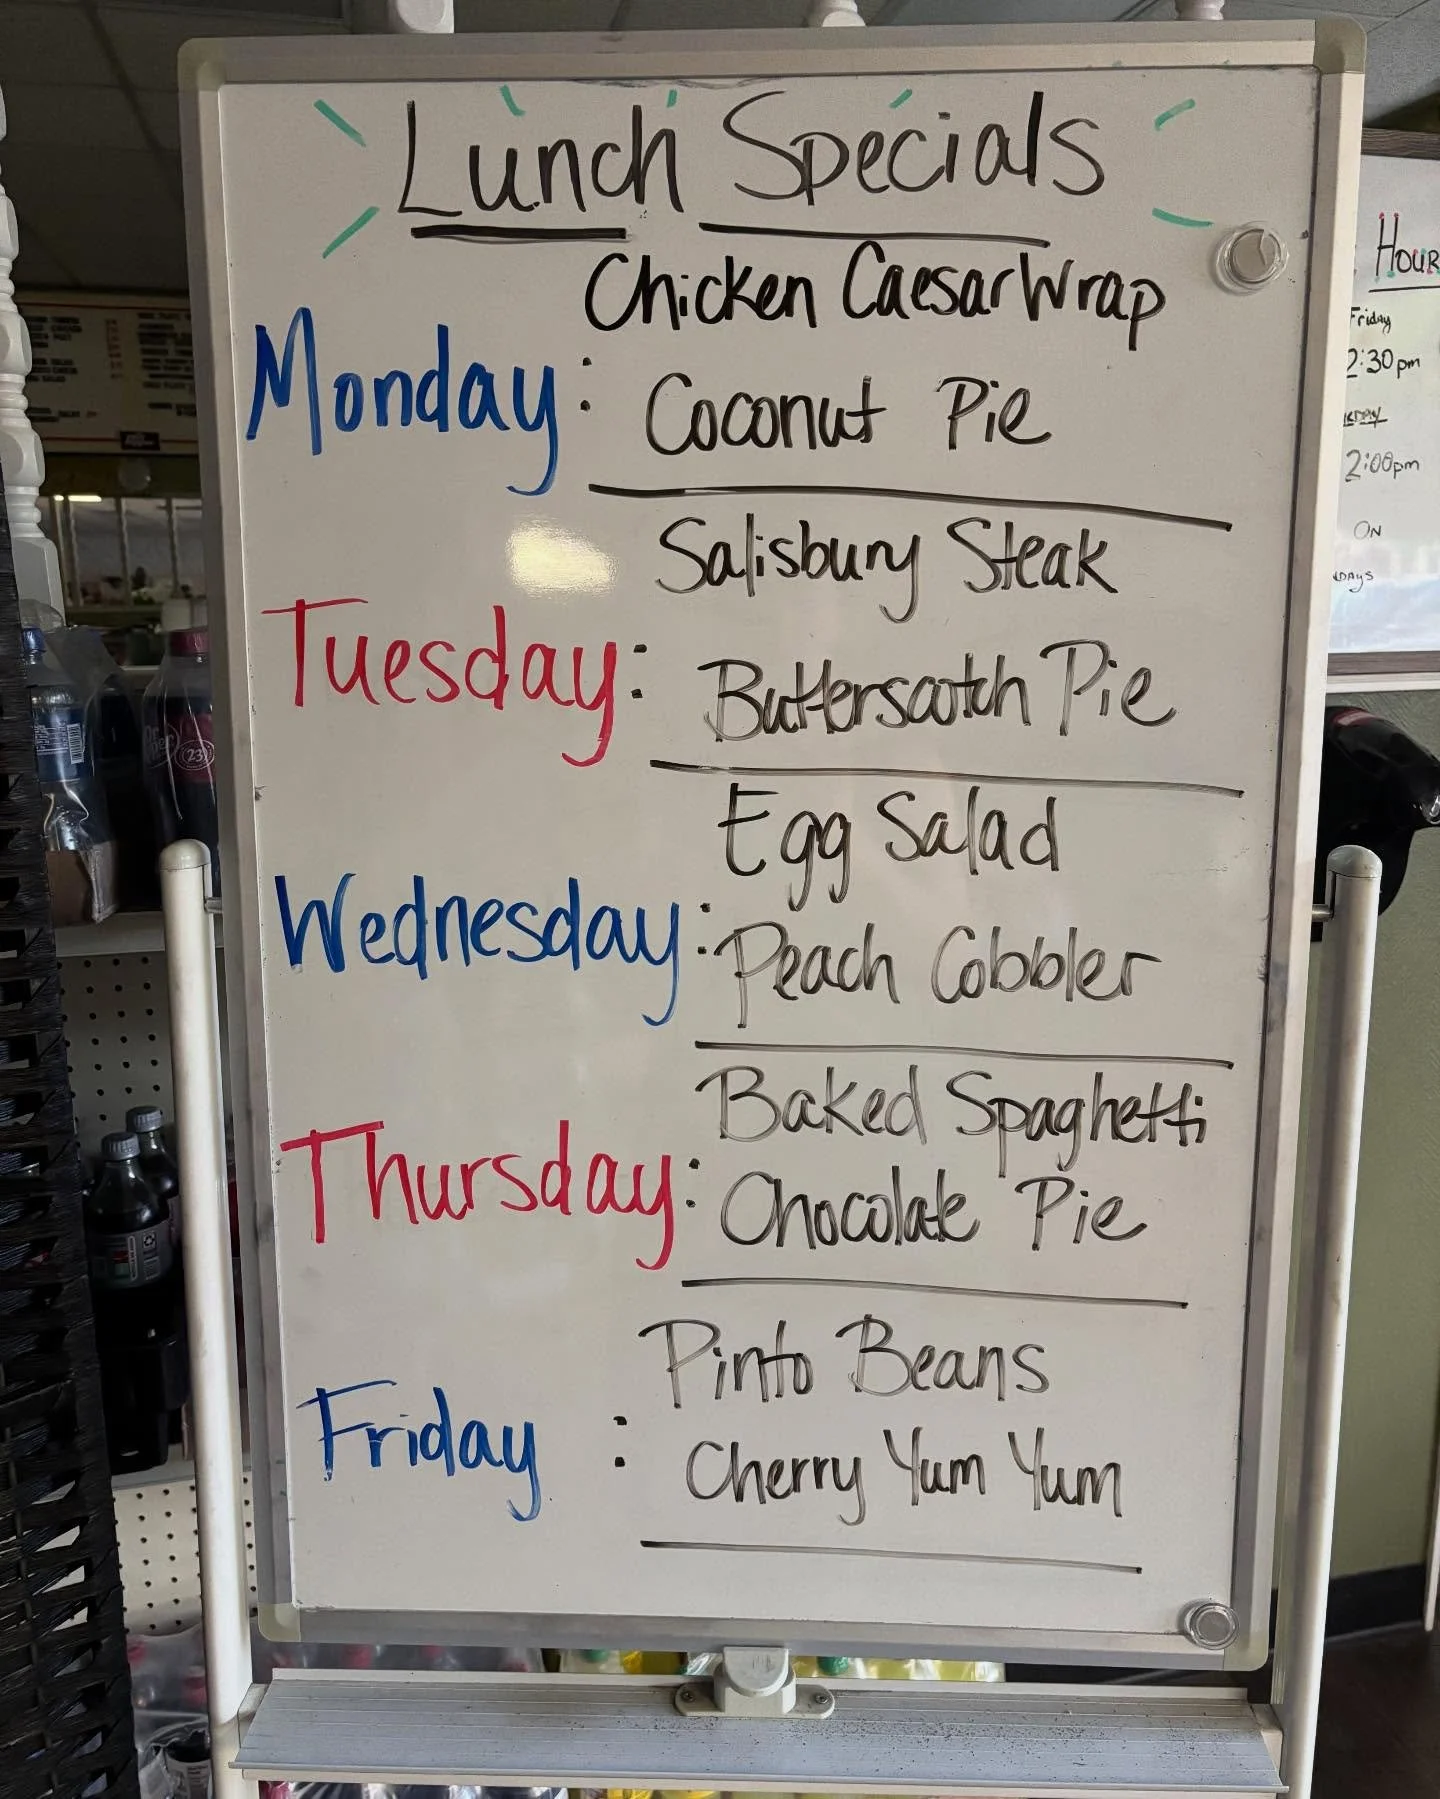 Lunch Specials
Chicken Caesar Wrap
Monday:
Coconut Pie
Salisbury Steak
Tuesday:
Butterscotch Pie
Egg Salad
Wednesday:
Peach Cobbler
Baked Spaghetti
Thursday:
Chocolate Pie
Pinto Beans
Friday :
Cherry Yum Yum
HOUR
Friday
2:30pm
2:00pm
ON
DAYS
23